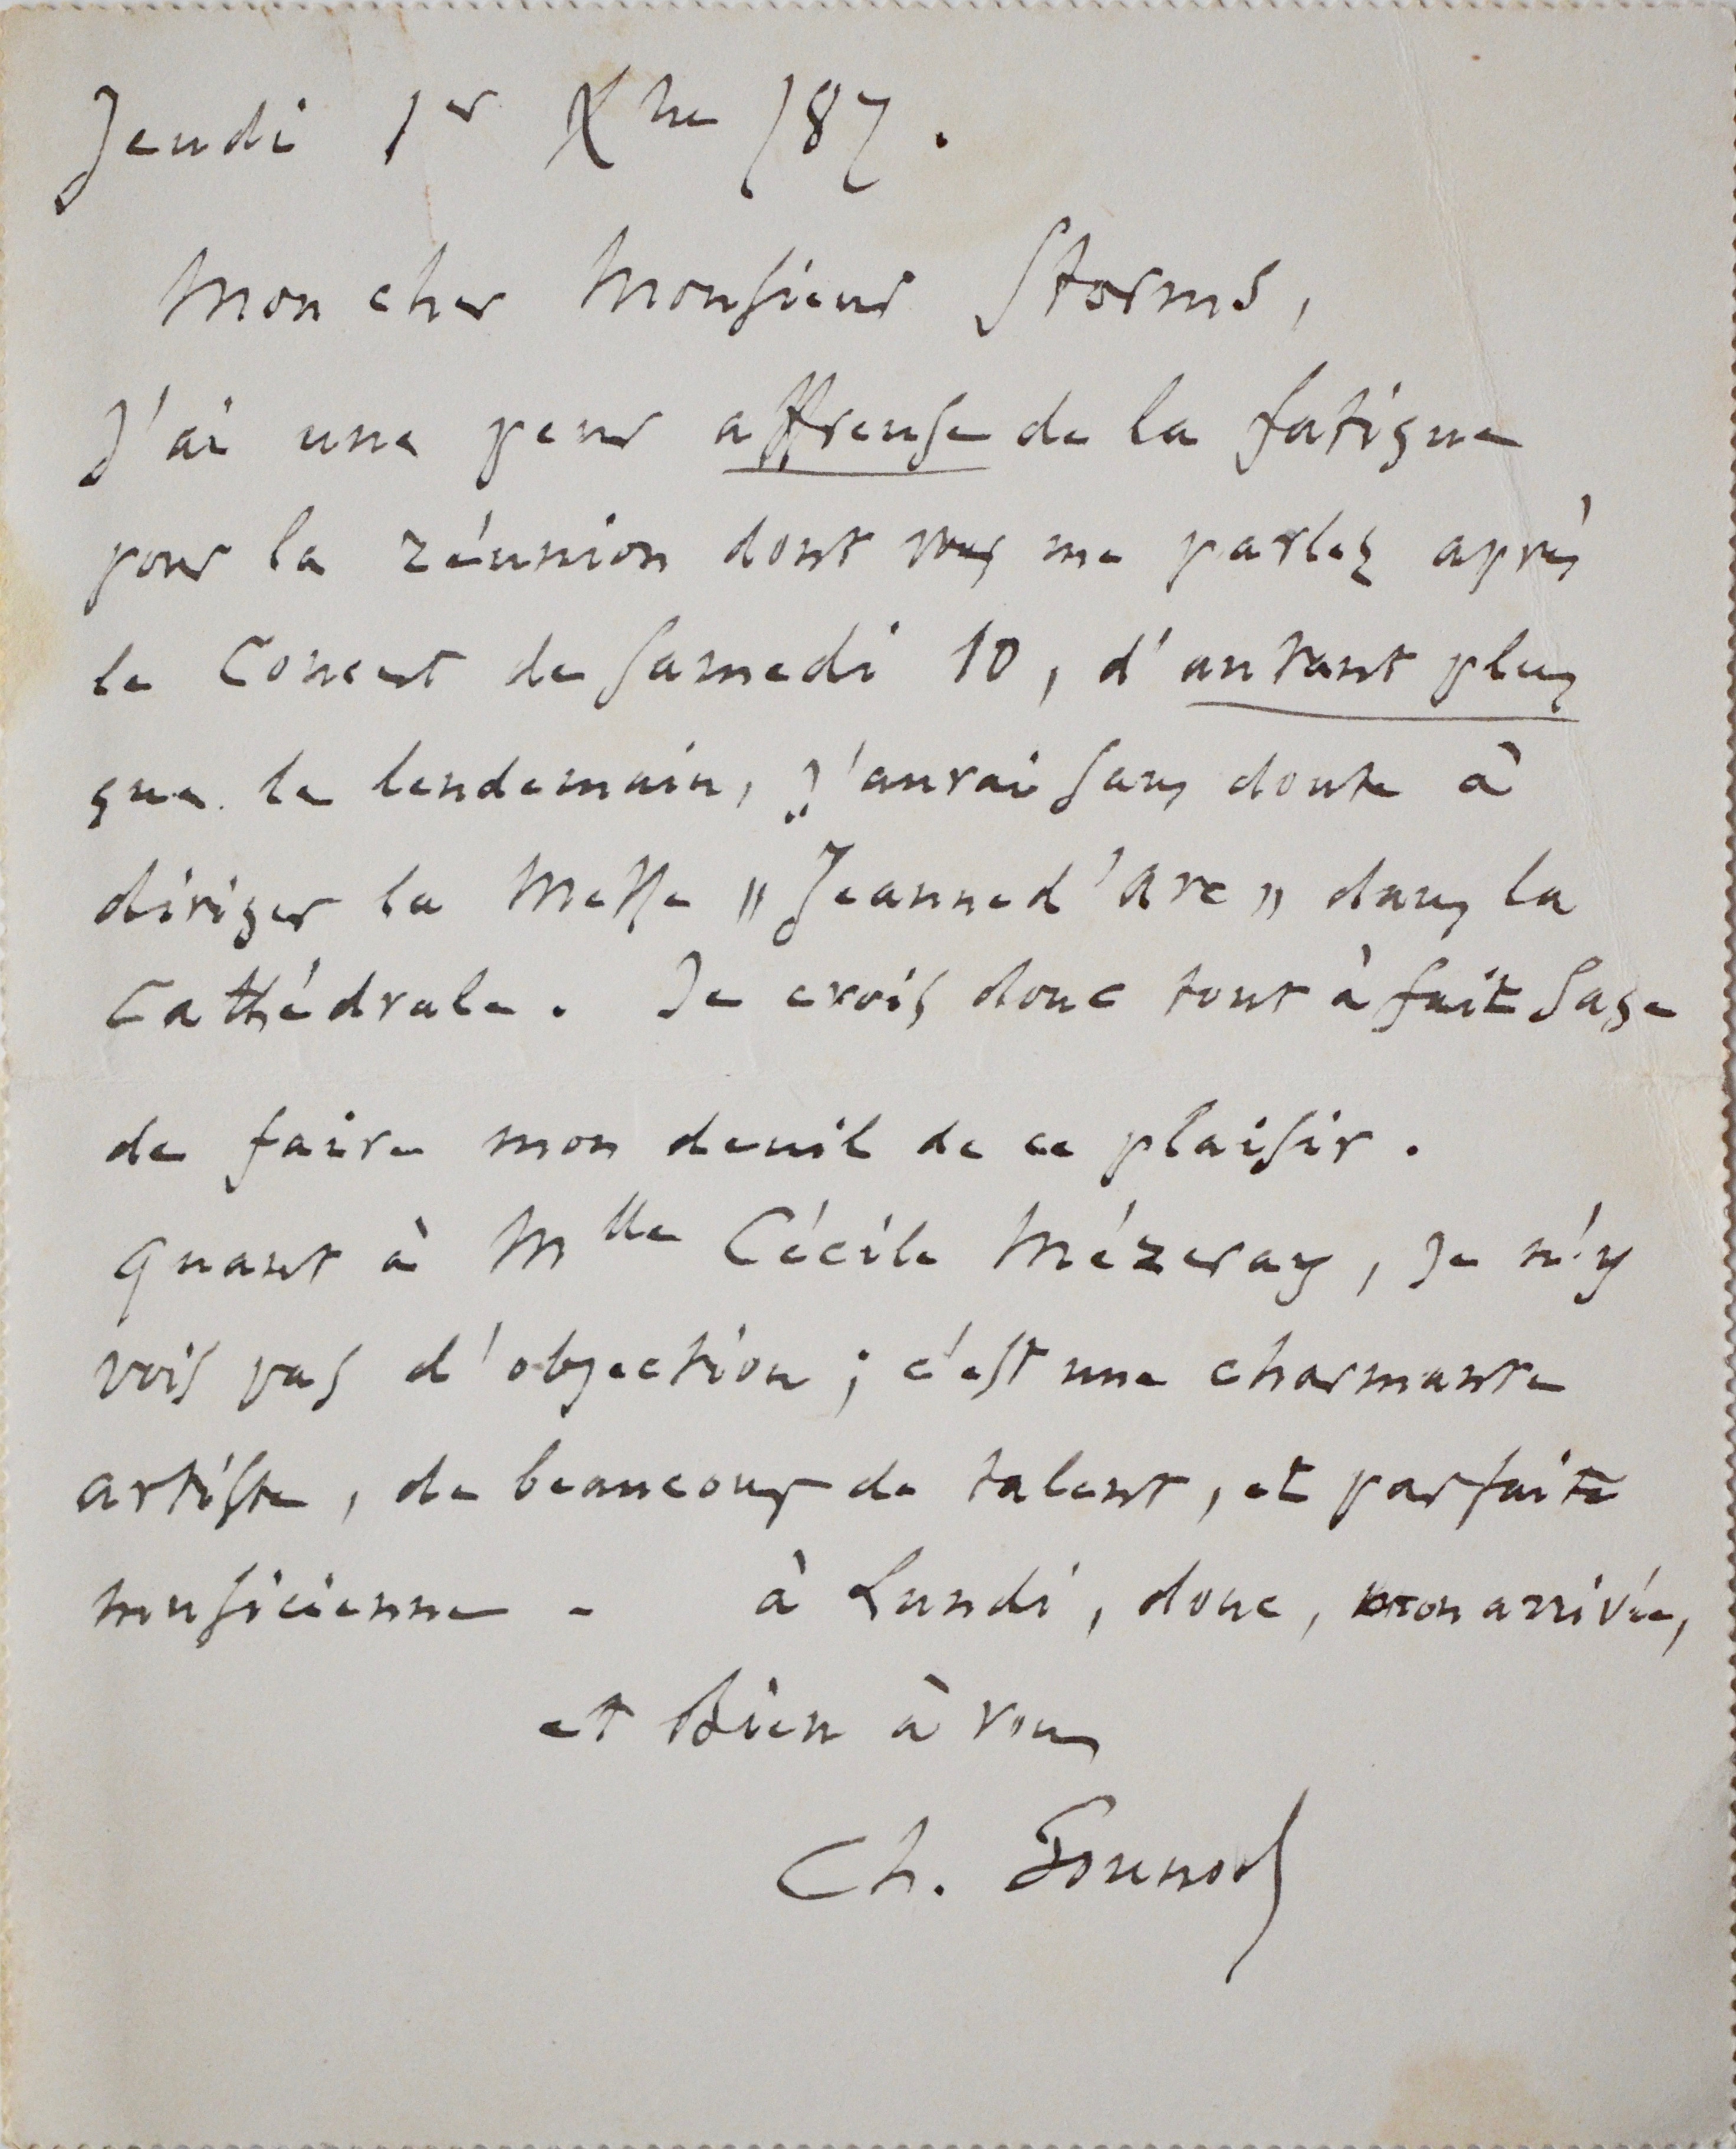 Jeudi 1er Xbre /87.
Mon cher Monsieur Storms,
J'ai une peur affreuse de la fatigue
pour la réunion dont vous me parlez après
le Concert de Samedi 10, d'autant plus
que le lendemain, j'aurai sans doute à
diriger la Messe "Jeanne d'Arc" dans la
Cathédrale. Je crois donc tout à fait sage
de faire mon deuil de ce plaisir.
Quant à Mlle Cécile Mézeray, je n'y
vois pas d'objection ; c'est une charmante
artiste, de beaucoup de talent, et parfaite
musicienne - à Lundi, donc, mon arrivée,
et bien à vous
Ch. Gounod